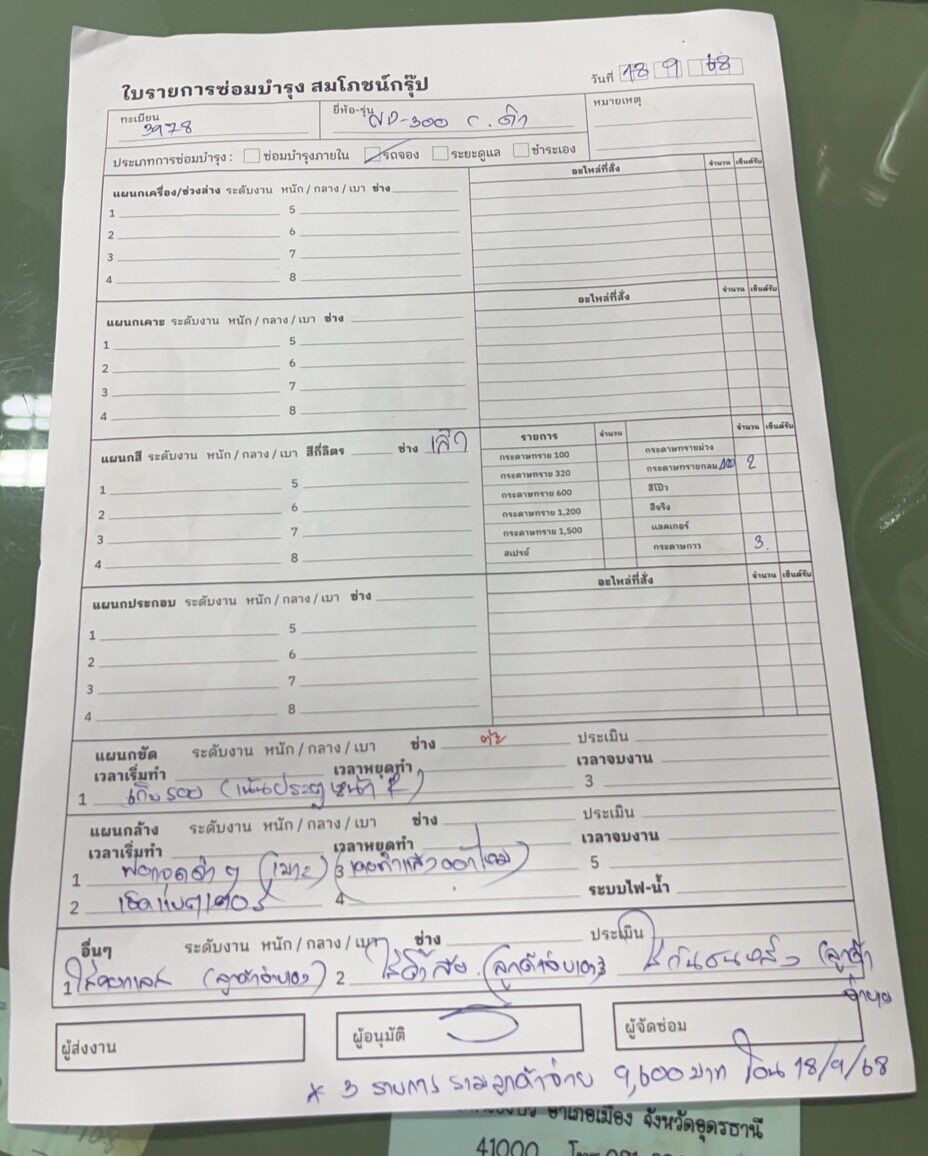 ใบรายการซ่อมบำรุง สมโภชน์กรุ๊ป
วันที่ 18 9 68
ทะเบียน 3978
ยี่ห้อ-รุ่น
หมายเหตุ
ประเภทการซ่อมบำรุง : ซ่อมบำรุงภายใน รถจอง ระยะดูแล ชำระเอง
แผนกเครื่อง/ช่วงล่าง ระดับงาน หนัก / กลาง / เบา ช่าง
อะไหล่ที่สั่ง จำนวน เซ็นต์รับ
1 5
2 6
3 7
4 8
แผนกเคาะ ระดับงาน หนัก / กลาง / เบา ช่าง
อะไหล่ที่สั่ง จำนวน เซ็นต์รับ
1 5
2 6
3 7
4 8
แผนกสี ระดับงาน หนัก / กลาง / เบา สีกี่ลิตร ช่าง
รายการ จำนวน จำนวน เซ็นต์รับ
1 5
2 6
3 7
4 8
กระดาษทราย 100 กระดาษทรายม่วง
กระดาษทราย 320 กระดาษทรายกลม 2
กระดาษทราย 600 สีโป๊ว
กระดาษทราย 1,200 สีจริง
กระดาษทราย 1,500 แลคเกอร์
สเปรย์ กระดาษกาว 3
แผนกประกอบ ระดับงาน หนัก / กลาง / เบา ช่าง
อะไหล่ที่สั่ง จำนวน เซ็นต์รับ
1 5
2 6
3 7
4 8
แผนกขัด ระดับงาน หนัก / กลาง / เบา ช่าง ประเมิน
เวลาเริ่มทำ เวลาหยุดทำ เวลาจบงาน
1 เก็บรอย (เน้นประตูหน้า 3
แผนกล้าง ระดับงาน หนัก / กลาง / เบา ช่าง ประเมิน
เวลาเริ่มทำ เวลาหยุดทำ เวลาจบงาน
1 ฟอกจุดดำๆ (เบาะ) 3 5
2 เช็ดแบตเตอรี่ 4 ระบบไฟ-น้ำ
อื่นๆ ระดับงาน หนัก / กลาง / เบา ช่าง ประเมิน
1 (ลูกค้าจ่ายเอง) 2 (ลูกค้าจ่ายเอง) 3 ใส่กันชนหลัง (ลูกค้า
จ่ายเอง
ผู้ส่งงาน ผู้อนุมัติ ผู้จัดซ่อม
* 3 รายการ รวมลูกค้าจ่าย 9,600 บาท โอน 18/9/68
อำเภอเมือง จังหวัดอุดรธานี
41000